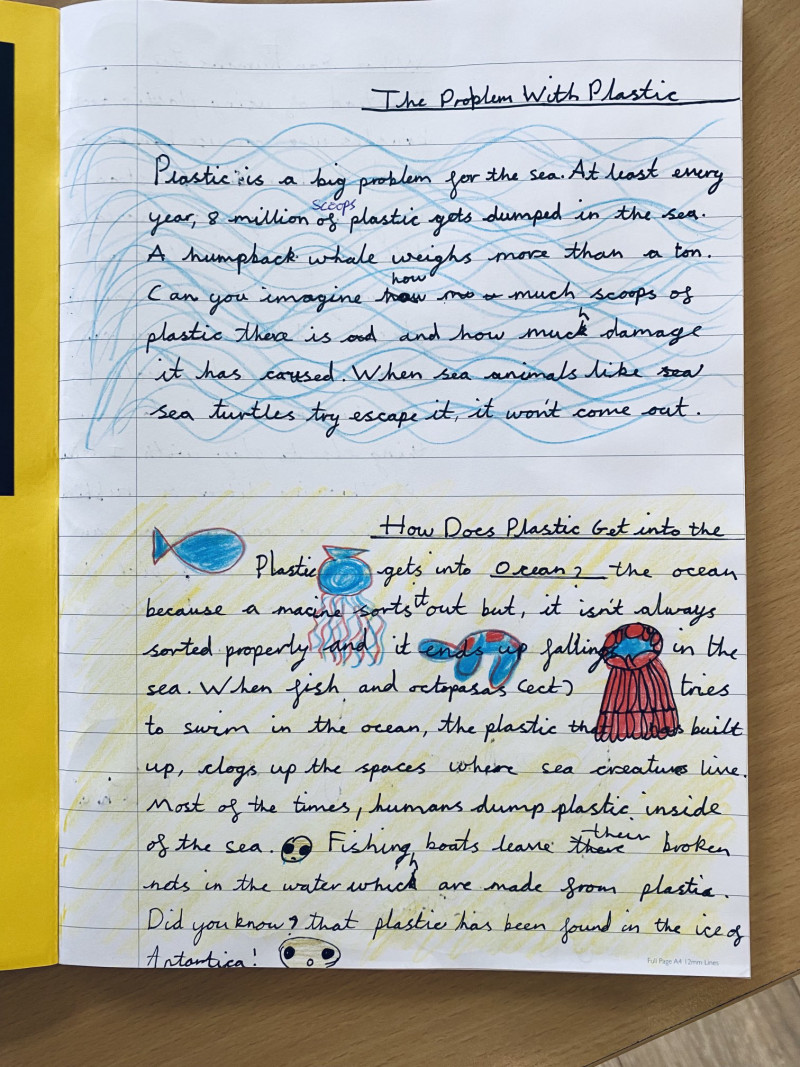 The Problem With Plastic
Plastic is a big problem for the sea. At least every
year, 8 million scoops of plastic gets dumped in the sea.
A humpback whale weighs more than a ton.
Can you imagine how much scoops of
plastic there is and how much damage
it has caused. When sea animals like
sea turtles try escape it, it won't come out.
How Does Plastic Get into the
Ocean?
Plastic gets into the ocean
because a macine sorts it out but, it isn't always
sorted properly and it ends up fallings in the
sea. When fish and octopasas (ect) tries
to swim in the ocean, the plastic that has built
up, clogs up the spaces where sea creatures live.
Most of the times, humans dump plastic inside
of the sea. Fishing boats leave their broken
nets in the water which are made from plastic.
Did you know? that plastic has been found in the ice of
Antartica!
Full Page A4 12mm Lines